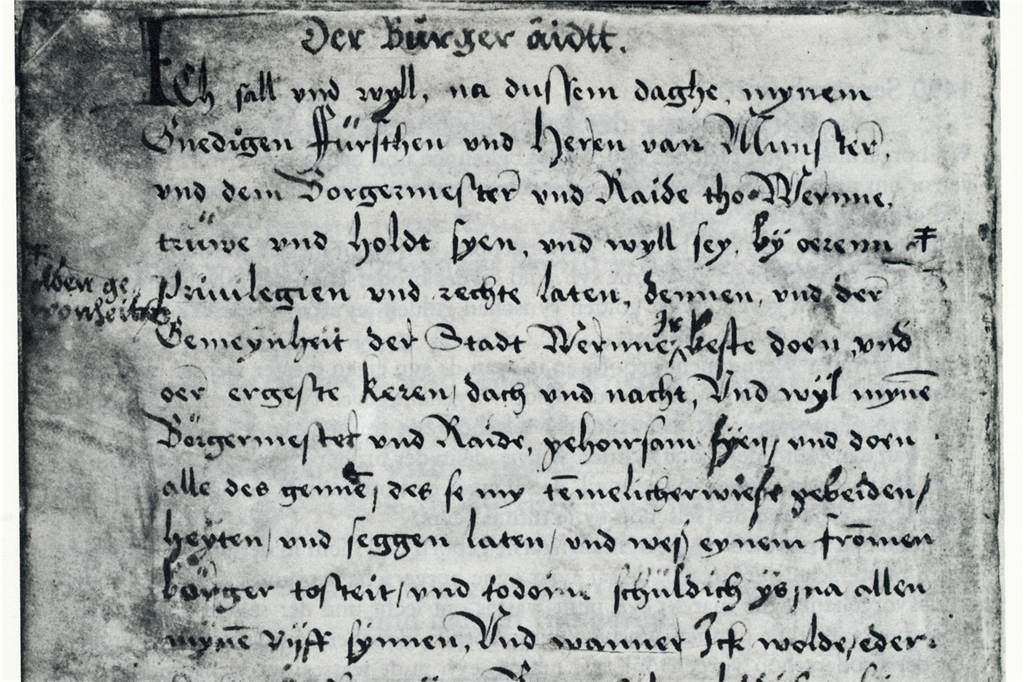 Der Bürger äidtt.
ICh sall vnd wyll, na dussem daghe, mynem
Gnedigen Fürsthen vnd Heren van Munster,
vnd dem Borgermester vnd Raide tho Wernne,
trüwe vnd holdt syen, vnd wyll sey, by oerenn ‡
‡ olden ge
wonheit
Priuilegien vnd rechte laten, dennen, vnd der
Gemeynheit der Stadt Wernne Ir beste doen, vnd
oer ergeste keren, dach vnd nacht, Vnd wyl mynē
Börgermester vnd Raide, gehoirsam syen, vnd doen
alle des gennē, des se my tēmelicherwiese gebeiden/
heyten/ vnd seggen laten/ vnd wes eynem frōmen
börger tosteit/ vnd todoine schüldich ys, na allen
mynē vyff synnen, Vnd wanner Ick wolde, eder